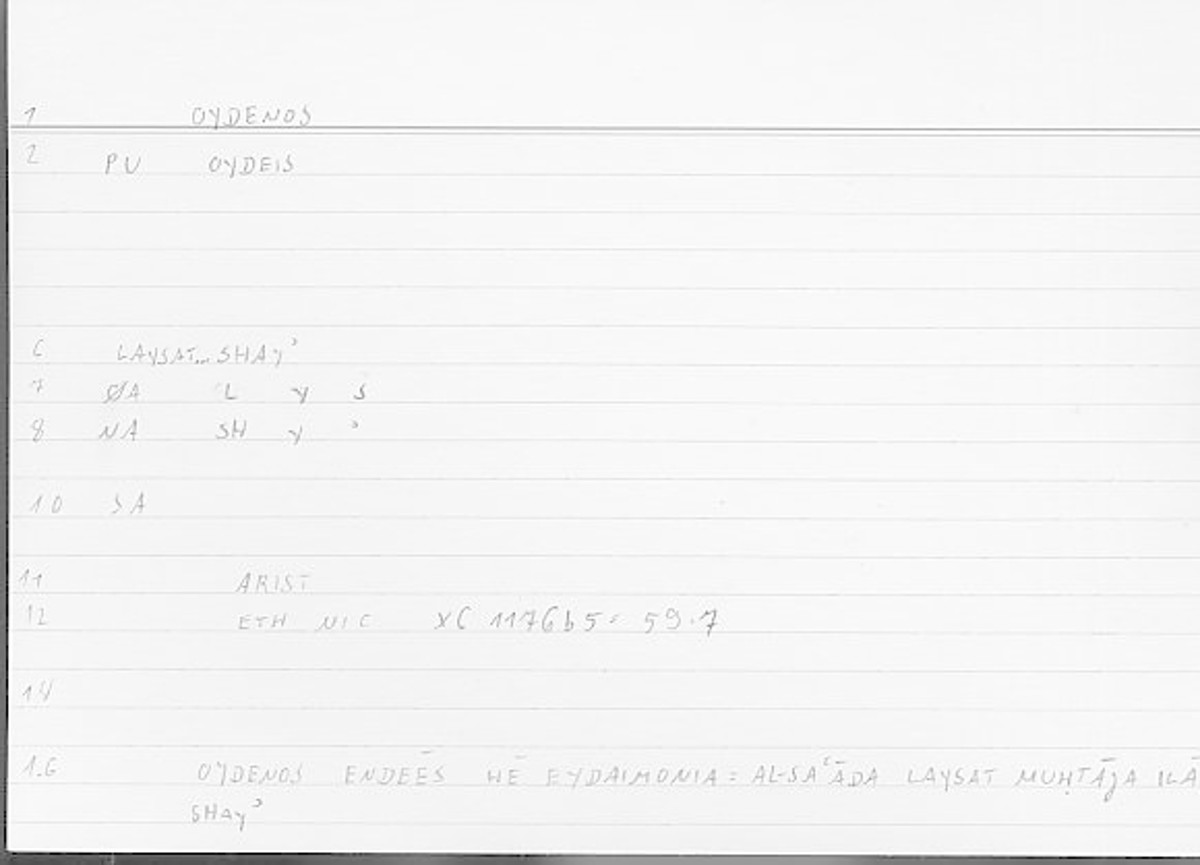 1 OYDENOS
2 PU OYDEIS
6 LAYSAT...SHAYʾ
7 ØA L Y S
8 NA SH Y ʾ
10 SA
11 ARIST
12 ETH NIC X6 1176b5: 59.7
14
16 OYDENOS ENDEĒS HĒ EYDAIMONIA = AL-SAʿĀDA LAYSAT MUḤTĀJA ILĀ
SHAYʾ